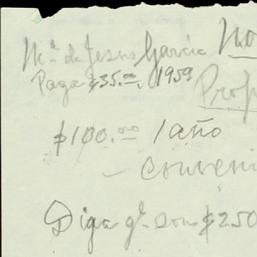 Ma. de Jesus Garcia No
Paga $35.00. 1959
Prop
$100.00 1 año
- Conveni
Diga q. son $250